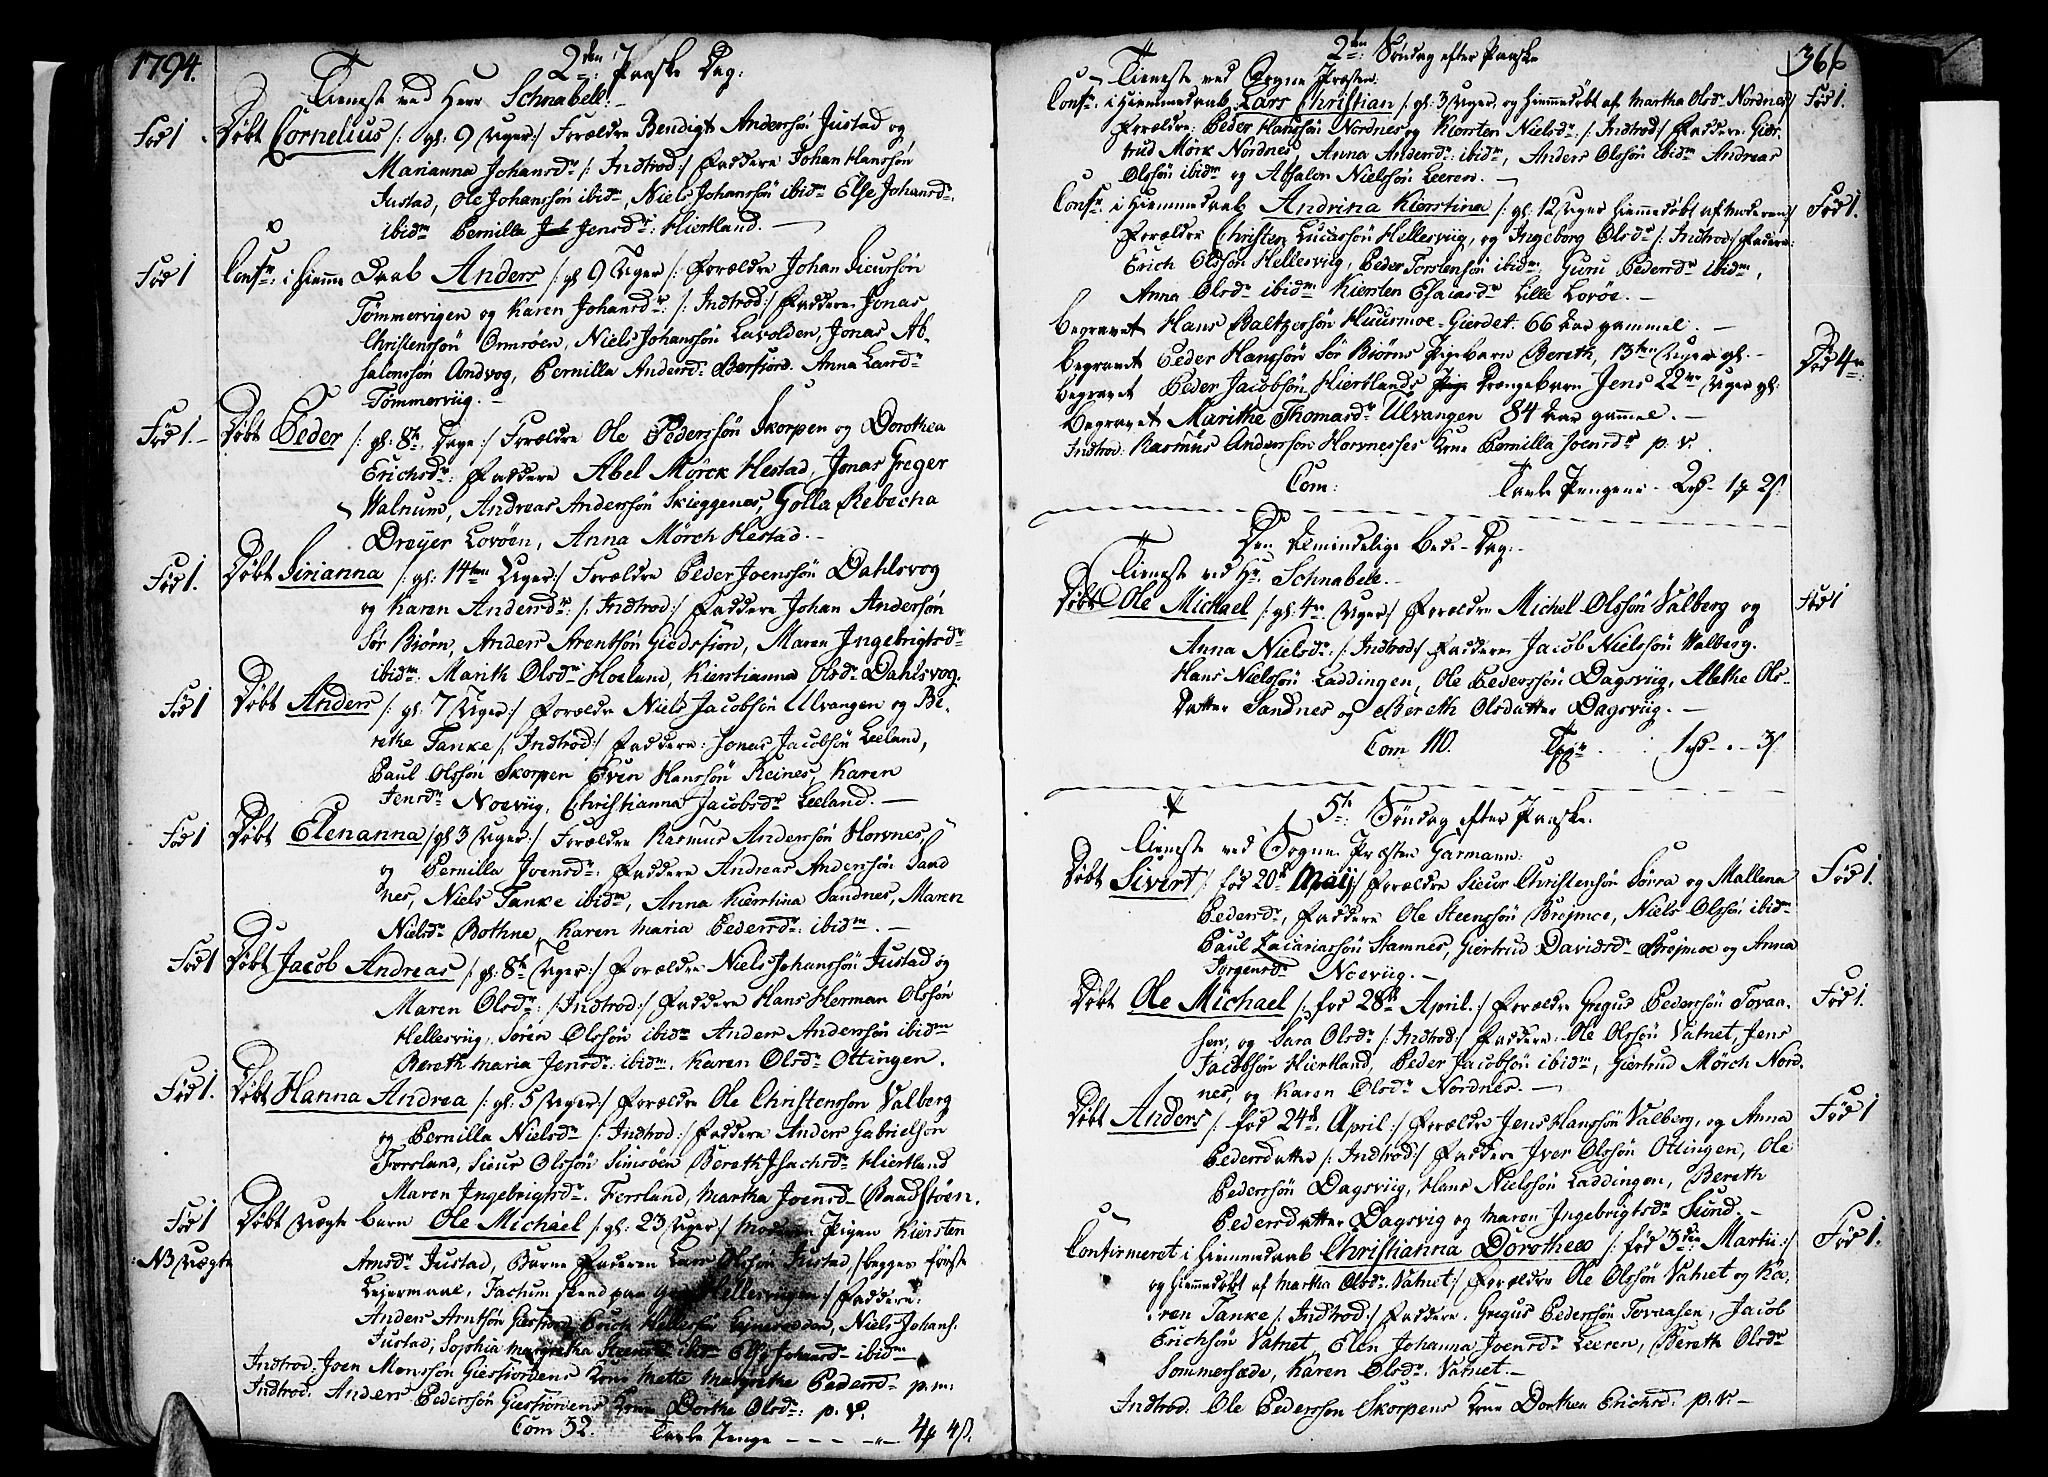 1794.
2den Paaske Dag:
Tieneste ved Herr Schnabell:
Fød 1. Døbt Cornelius /: gl: 9 Uger :/ Forældre Bendigt Anderssøn Justad og
Marianna Johansdr /: Indtrod :/ Faddere Johan Hanssøn
Justad, Ole Johanssøn ibidm, Niels Johanssøn ibidm Else Johansdr
ibidm Pernilla Jensdr: Hiertland. —
Fød 1 Confr: i Hiemme Daab Anders /: gl 9 Uger /: Forældre Johan Sieurssøn
Tømmervigen og Karen Johansdr: /: Indtrod :/ Faddere Jonas
Christenssøn Ormsøen, Niels Johanssøn Lavolden, Jonas Ab-
salonssøn Andvog, Pernilla Andersdr Børfiord. Anna Larsdr
Tømmerviig. —
Fød 1. Døbt Peder /: gl: 8te Dage :/ Forældre Ole Pederssøn Skorpen og Dorothea
Erichsdr: Faddere Abel Mørck Hestad, Jonas Greger
Walnum, Andreas Anderssøn Skieggenes, Golla Rebecha
Dreyer Lovøen, Anna Mørch Hestad. —
Fød 1. Døbt Sirianna /: gl: 14ten Uger :/ Forældre Peder Joenssøn Dahlsvog
og Karen Andersdr: /: Indtrod :/ Faddere Johan Anderssøn
Sør Biørn, Anders Arentsøn Giedsfior, Maren Ingebrigtsdr
ibidm: Marith Olsdr Hoeland, Kierstianna Olsdr Dahlsvog.
Fød 1 Døbt Anders /: gl: 7 Uger :/ Forældre Niels Jacobsøn Ulvangen og Be-
rethe Tanke /: Indtrod :/ Faddere: Jonas Jacobsøn Leeland,
Paul Olssøn Skorpen Even Hanssøn Reines, Karen
Jensdr Noeviig, Christianna Jacobsdr Leeland. —
Fød 1 Døbt Elenanna /: gl 3 Uger :/ Forældre Rasmus Anderssøn Horvnes,
og Pernilla Joensdr: Faddere Andreas Anderssøn Sand
nes, Niels Tanke ibidm, Anna Kierstina Sandnes, Maren
Nielsdr Bothne, Karen Maria Pedersdr: ibidm. —
Fød 1 Døbt Jacob Andreas /: gl: 8te Uger :/ Forældre Niels Johanssøn Justad og
Maren Olsdr: /: Indtrod :/ Faddere Hans Herman Olssøn
Hellesviig, Søren Olssøn ibidm Anders Anderssøn ibidm
Bereth Maria Jensdr: ibidm. Karen Olsdr Ottingen.
Fød 1. Døbt Hanna Andrea /: gl: 5 Uger :/ Forældre Ole Christenssøn Valberg
og Pernilla Nielsdr /: Indtrod :/ Faddere Anders Gabrielsøn
Forsland, Sieur Olssøn Simsøen Bereth Isachsdr Hiertland
Maren Ingebrigtsdr. Forsland, Martha Joensdr Baadstøen.
Fød 1 Døbt Uægte Barn Ole Michael /: gl: 23 Uger :/ Moderen Pigen Kiersten
:NB Uægte Arnsdr Justad, Barne Faderen Lars Olssøn Justad /: begges første
Leyermaal, Factum skeed paa Hellesviigen :/ Faddere:
Anders Arntsøn Giesfiord, Erich, Niels Johans.
Justad, Sophia Margretha ibidm Else Johansdr ibidm
Indtrod: Joen Monssøn Giesfiordens Kone Mette Margrethe Pedersdr p. m:
Indtrod: Anders Pederssøn Giesfiordens Kone Dorthe Olsdr: p. v.
Com 32. Tavle Penge - - - - „ - 4 ₰ 4 ß.
366
2den: Søndag efter Paaske
Tieneste ved Sogne Præsten:
Confr: i Hiemmedaab Lars Christian /: gl: 3 Uger, og Hiemmedøbt af Martha Olsdr Nordnes / Fød 1.
Forældre: Peder Hanssøn Nordnes og Kiersten Nielsdr: /: Indtrod :/ Faddere: Gier-
trud Mørk Nordnes, Anna Andersdr: ibidm, Anders Olssøn ibidm Andreas
Olssøn ibidm og Absalon Nielssøn Leeren. —
Confr: i Hiemmedaab Andrina Kierstina /: gl: 12 Uger Hiemmedøbt af Moderen / Fød 1.
Forældre Christen Lucassøn Hellesviig, og Ingeborg Olsdr /: Indtrod :/ Faddere:
Erich Olssøn Hellesviig, Peder Torstensøn ibidm: Guru Pedersdr ibidm,
Anna Olsdr ibidm Kiersten Esaiasdr Lille Lovøe. —
Begravet Hans Baltzersøn Huusmoe-Gierdet. 66 Aar gammel. —
Begravet Peder Hanssøns Sør Biørns Pigebarn Bereth, 13ten Uger gl. — Død 4re:
Begravet Peder Jacobsøn Hiertlands Drengebarn Jens 22de Uger gl:
Begravet Marithe Thomasdr Ulvangen 84 Aar gammel. —
Indtrod: Rasmus Anderssøn Horvnesses Kone Pernilla Joensdr p. v.
Com: Tavle Pengene - 2rd - 1 ₰ 2ß.
Den Almindelige Bede-Dag:
Tieneste ved Hr: Schnabell. —
Døbt Ole Michael /: gl: 4re Uger :/ Forældre Michel Olssøn Valberg og Fød 1
Anna Nielsdr: /: Indtrod :/ Faddere Jacob Nielssøn Valberg.
Hans Nielssøn Laddingen, Ole Pederssøn Dagsviig, Alethe Ols-
Datter Sandnes og Bereth Olsdatter Dagsviig. —
Com 110. Tpge . . . 1rd - „ - 3ß.
5te: Søndag efter Paaske.
Tieneste ved Sogne Præsten Garmann:
Døbt Sivert /: fød 20de Maij :/ Forældre Sieur Christensøn Sørra og Mallena Fød 1.
Pedersdr, Faddere Ole Steenssøn Brejmoe, Niels Olssøn ibidm
Paul Zacariassøn Stamnes, Giertrud Davidsdr Brejmoe og Anna
Jørgensdr Noeviig. —
Døbt Ole Michael /: fød 28de April :/ Forældre Gregus Pederssøn Tovaa- Fød 1.
sen, og Sara Olsdr /: Indtrod :/ Faddere: Ole Olssøn Vatnet, Jens
Jacobsøn Hiertland, Peder Jacobsøn ibidm, Giertrud Mörch Nord-
nes, og Karen Olsdr Nordnes. —
Døbt Anders /: fød 24de April :/ Forældre Jens Hanssøn Valberg, og Anna Fød 1
Pedersdatter /: Indtrod :/ Faddere Iver Olssøn Ottingen, Ole
Pederssøn Dagsviig, Hans Nielssøn Laddingen, Bereth
Pedersdatter Dagsvig og Maren Ingebrigtsdr Sund. —
Confirmeret i Hiemmedaab Christianna Dorothea /: fød 3die: Martii :/ Fød 1.
og Hiemmedøbt af Martha Olsdr Vatnet :/ Forældre Ole Olssøn Vatnet og Ka-
ren Tanke /: Indtrod :/ Faddere. Gregus Pederssøn Tovaasen, Jacob
Erichsøn Vatnet, Elen Johanna Joensdr Leeren, Bereth Olsdr
Sommersæde, Karen Olsdr: Vatnet. —
Indtrod: Ole Pederssøn Skorpens Kone Dorthea Erichsd: p. v. —